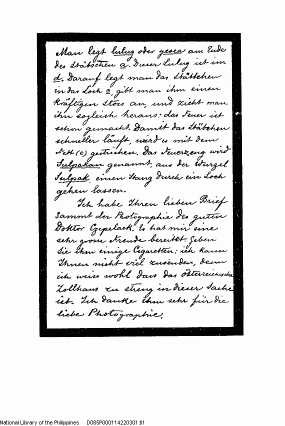 Man legt lulug oder yesca am Ende
des Stäbchens a. Dieser Lulug ist in
d. Darauf legt man das Stäbchen
in das Loch a, gibt man ihm einen
kräftigen Stoss an, und zieht man
ihn sogleich heraus: das Feuer ist
schon gemacht. Damit das Stäbchen
schneller laufe, wird es mit dem
Fett (e) gestrichen. Das Feuerzeug wird
Sulpakan genannt, aus der Wurzel
Sulpak einen Stang durch ein Loch
gehen lassen.
Ich habe Ihren lieben Brief
sammt der Photographie des guten
Doktor Czepelack. Es hat mir eine
sehr grosse Freude bereitet. Geben
Sie ihm einige Cigaretten; ich kann
Ihnen nicht viel zusenden, denn
ich weiss wohl dass das österreichische
Zollhaus zu streng in dieser Sache
ist. Ich danke ihm sehr für die
liebe Photographie.
National Library of the Philippines D085P8001114220301.tif